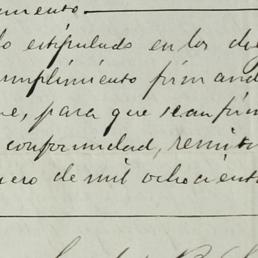 amento.
lo estipulado en los di
umplimiento firman
ne, para que sean firm
conformidad, remit
ero de mil ochocient